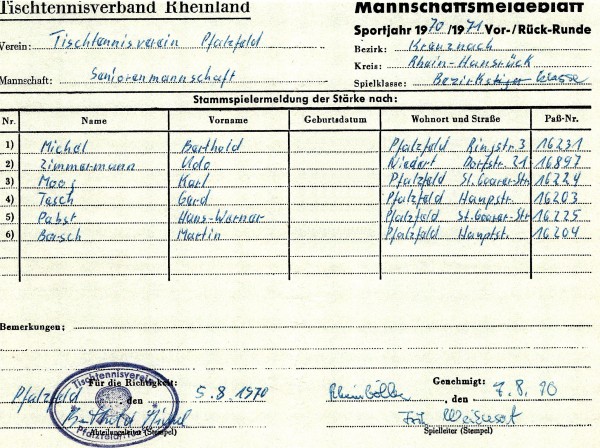 Tischtennisverband Rheinland
Mannschaftsmeldeblatt
Sportjahr 1970/1971 Vor-/Rück-Runde
Verein: Tischtennisverein Pfalzfeld
Bezirk: Kreuznach
Kreis: Rhein-Hunsrück
Mannschaft: Seniorenmannschaft
Spielklasse:
Stammspielermeldung der Stärke nach:
Nr. Name Vorname Geburtsdatum Wohnort und Straße Paß-Nr.
1) Michel Berthold Pfalzfeld Ringstr. 3 16231
2) Zimmermann Udo Dorfstr. 21 16897
3) Karl Pfalzfeld St. Goarer-Str 16224
4) Tesch Gerd Pfalzfeld Hauptstr. 16203
5) Pabst Hans-Werner Pfalzfeld St. Goarer-Str 16225
6) Martin Pfalzfeld Hauptstr. 16204
Bemerkungen:
Für die Richtigkeit: Genehmigt:
Pfalzfeld den 5.8.1970 , den 7.8.70
Tischtennisverein
Pfalzfeld
Abteilungsleiter (Stempel) Spielleiter (Stempel)